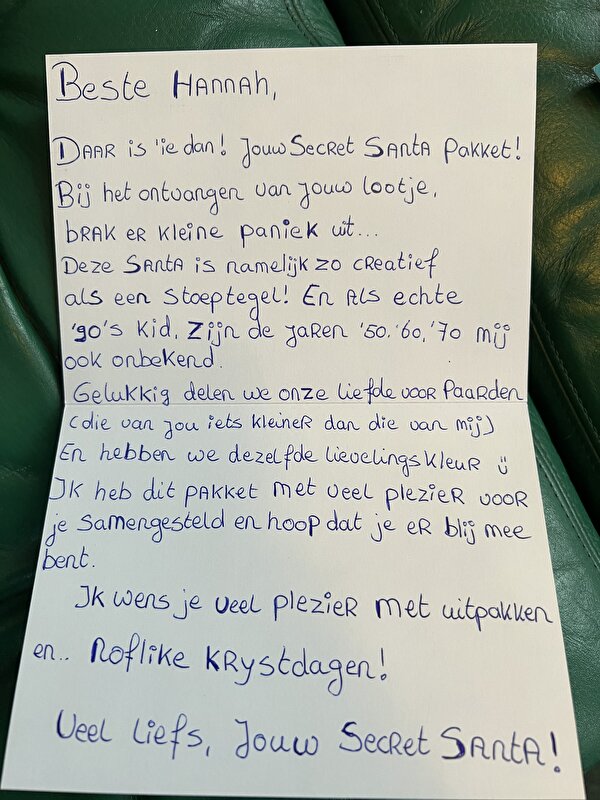 Beste Hannah,
Daar is 'ie dan! Jouw Secret Santa pakket!
Bij het ontvangen van jouw lootje,
brak er kleine paniek uit...
Deze Santa is namelijk zo creatief
als een stoeptegel! En als echte
'90's kid, zijn de jaren '50. '60, '70 mij
ook onbekend.
Gelukkig delen we onze liefde voor paarden
(die van jou iets kleiner dan die van mij)
En hebben we dezelfde lievelingskleur ü
Ik heb dit pakket met veel plezier voor
je samengesteld en hoop dat je er blij mee
bent.
Ik wens je veel plezier met uitpakken
en.. Noflike Krystdagen!
Veel liefs, Jouw Secret Santa!